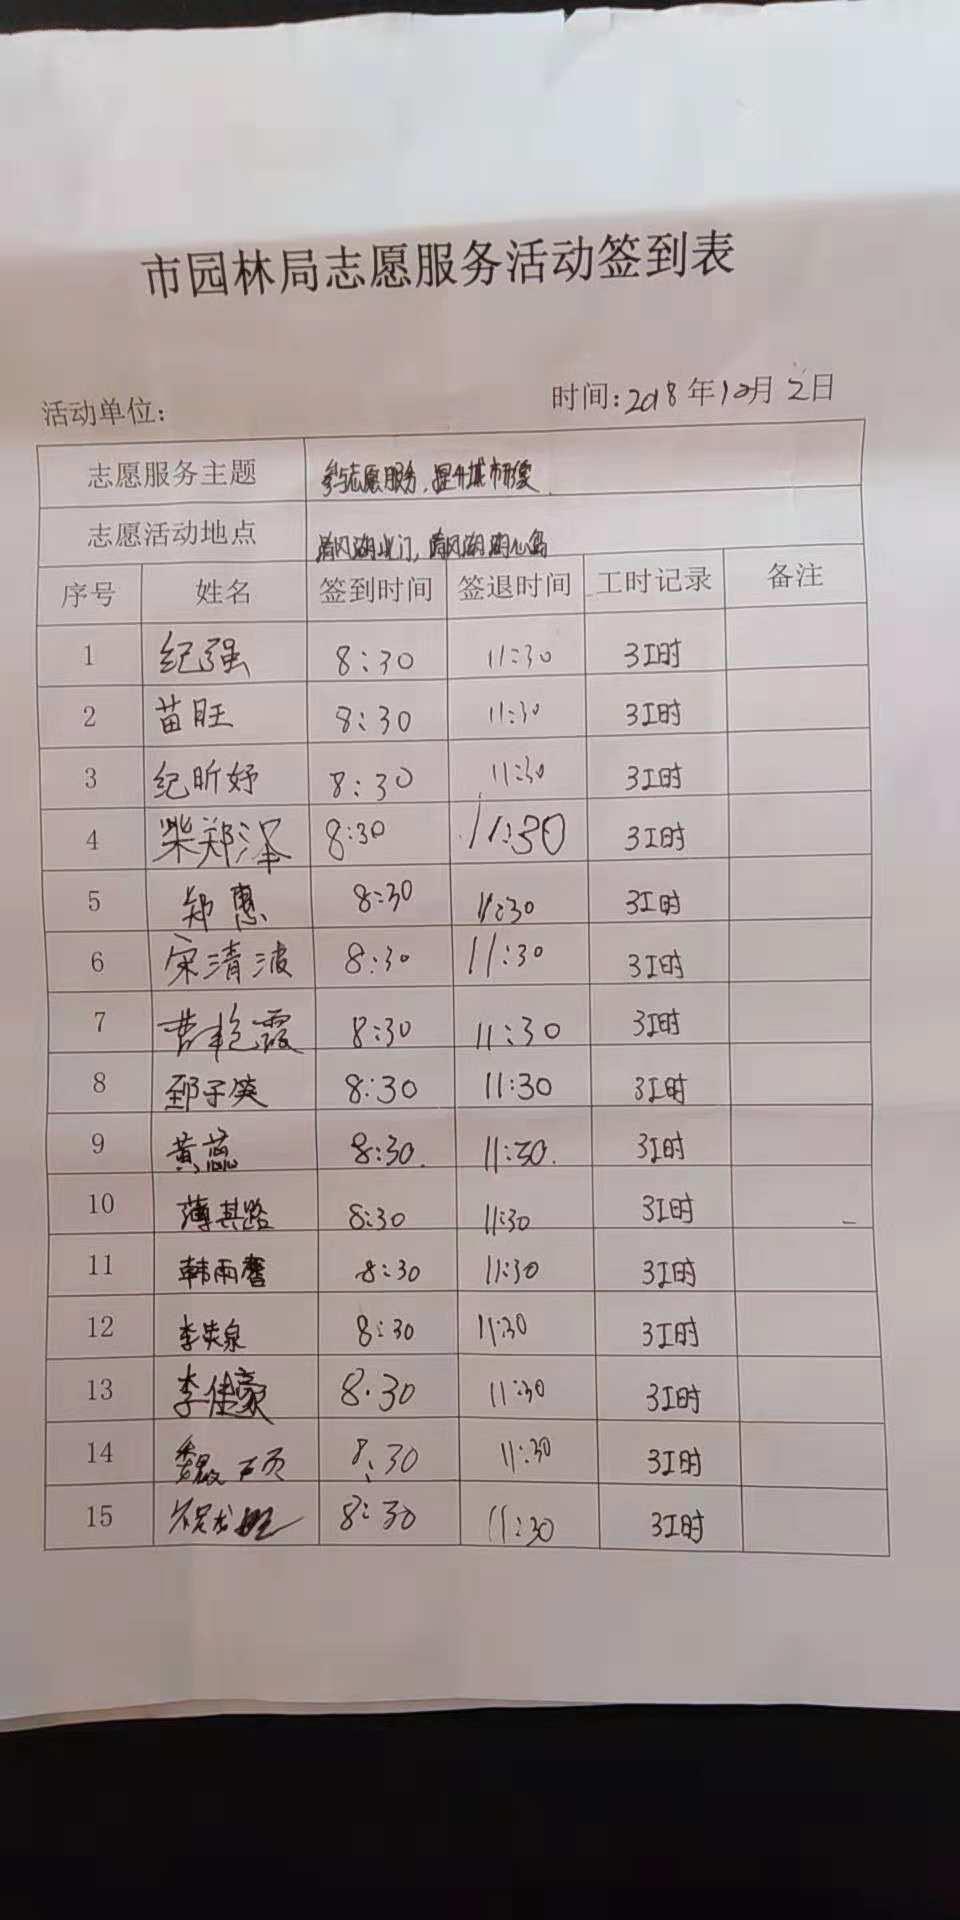 市园林局志愿服务活动签到表
活动单位: 时间:2018年10月2日
志愿服务主题 参与志愿服务,提升城市形象
志愿活动地点 清风湖北门,清风湖湖心岛
序号 姓名 签到时间 签退时间 工时记录 备注
1 纪强 8:30 11:30 3工时
2 苗旺 8:30 11:30 3工时
3 纪昕妤 8:30 11:30 3工时
4 柴郑泽 8:30 11:30 3工时
5 郑惠 8:30 11:30 3工时
6 宋清波 8:30 11:30 3工时
7 曹艳霞 8:30 11:30 3工时
8 郅子笑 8:30 11:30 3工时
9 黄蕊 8:30 11:30 3工时
10 薄其路 8:30 11:30 3工时
11 韩雨 8:30 11:30 3工时
12 李英泉 8:30 11:30 3工时
13 李佳豪 8:30 11:30 3工时
14 魏硕 8:30 11:30 3工时
15 8:30 11:30 3工时